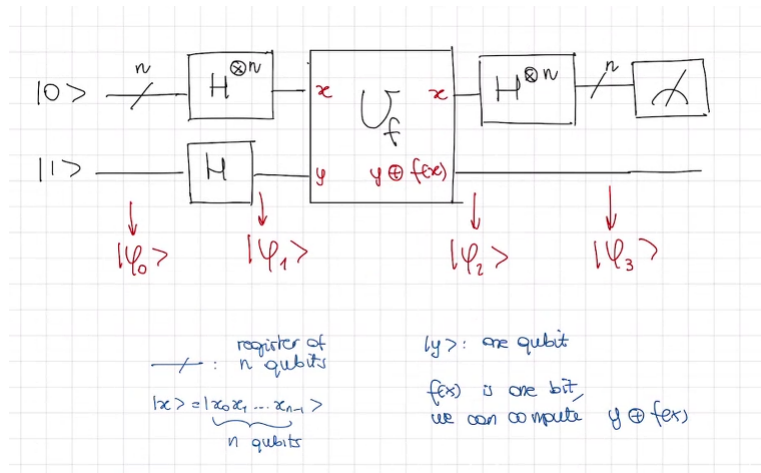 |0> n H⊗n x U_f x H⊗n n
|1> H y y ⊕ f(x)
|φ₀> |φ₁> |φ₂> |φ₃>
: register of
n qubits
|x> = |x₀x₁ ... xₙ₋₁>
n qubits
|y>: one qubit
f(x) is one bit,
we can compute y ⊕ f(x)